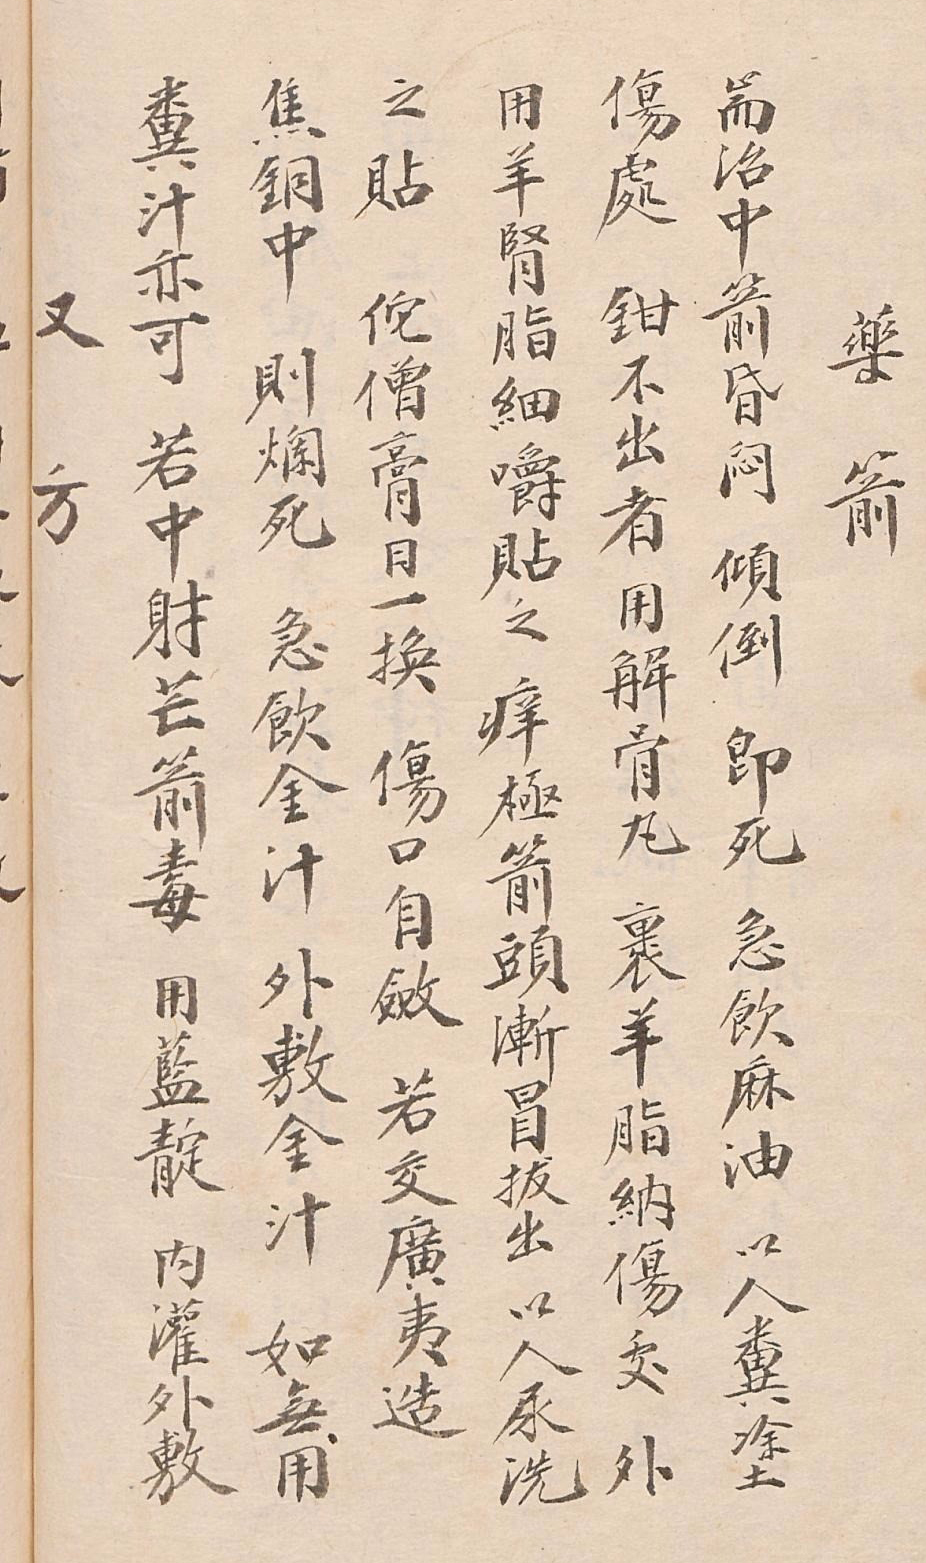 藥箭
耑治中箭昏悶 傾倒 即死 急飲麻油 以人糞塗
傷處 鉗不出者 用解骨丸 裹羊脂納傷处 外
用羊腎脂細嚼貼之 痒極箭頭漸冒拔出 以人尿洗
之貼 佗僧膏日一換 傷口自斂 若交廣夷造
焦銅中 則爛死 急飲金汁 外敷金汁 如無用
糞汁亦可 若中射芒箭毒 用藍靛 内灌外敷
又方